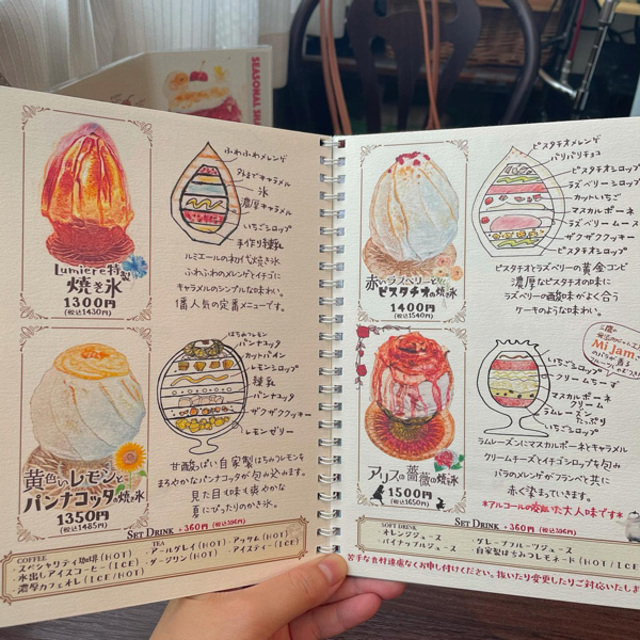 SEASONAL
ふわふわメレンゲ
外までキャラメル
氷
濃厚キャラメル
いちごシロップ
手作り練乳
ルミエールの初代焼き氷
ふわふわのメレンゲとイチゴに
キャラメルのシンプルな味わい。
1番人気の定番メニューです。
Lumiere特製
焼き氷
1300円
(税込1430円)
はちみつレモン
パンナコッタ
カットパイン
レモンシロップ
練乳
パンナコッタ
ザクザククッキー
レモンゼリー
甘酸っぱい自家製はちみつレモンを
まろやかなパンナコッタが包み込みます。
見た目も味も爽やかな
夏にぴったりのかき氷。
黄色いレモンと
パンナコッタの焼き氷
1350円
(税込1485円)
SET DRINK +360円 (税込396円)
COFFEE
・スペシャリティ珈琲(HOT)
・水出しアイスコーヒー(ICE)
・濃厚カフェオレ(ICE/HOT)
TEA
・アールグレイ(HOT)
・アッサム(HOT)
・ダージリン(HOT)
・アイスティー(ICE)
ピスタチオメレンゲ
パリパリチョコ
ピスタチオシロップ
ラズベリーシロップ
カットいちご
マスカルポーネ
ラズベリームース
ザクザククッキー
ピスタチオシロップ
ピスタチオとラズベリーの黄金コンビ
濃厚なピスタチオの味に
ラズベリーの酸味がよく合う
ケーキのような味わい。
赤いラズベリーと
ピスタチオの焼き氷
1400円
(税込1540円)
Mi Jam
いちごシロップ
クリームチーズ
マスカルポーネ
クリーム
ラムレーズン
たっぷり
いちごシロップ
ラムレーズンにマスカルポーネとキャラメル
クリームチーズとイチゴシロップを包み
バラのメレンゲがフランベと共に
赤く染まっていきます。
*アルコールの効いた大人味です*
アリスの薔薇の焼き氷
1500円
(税込1650円)
SET DRINK +360円 (税込396円)
SOFT DRINK
・オレンジジュース
・パイナップルジュース
・グレープフルーツジュース
・自家製はちみつレモネード(HOT/ICE)
苦手な食材遠慮なくお申し付けください。抜いたり変更したりご対応いたします